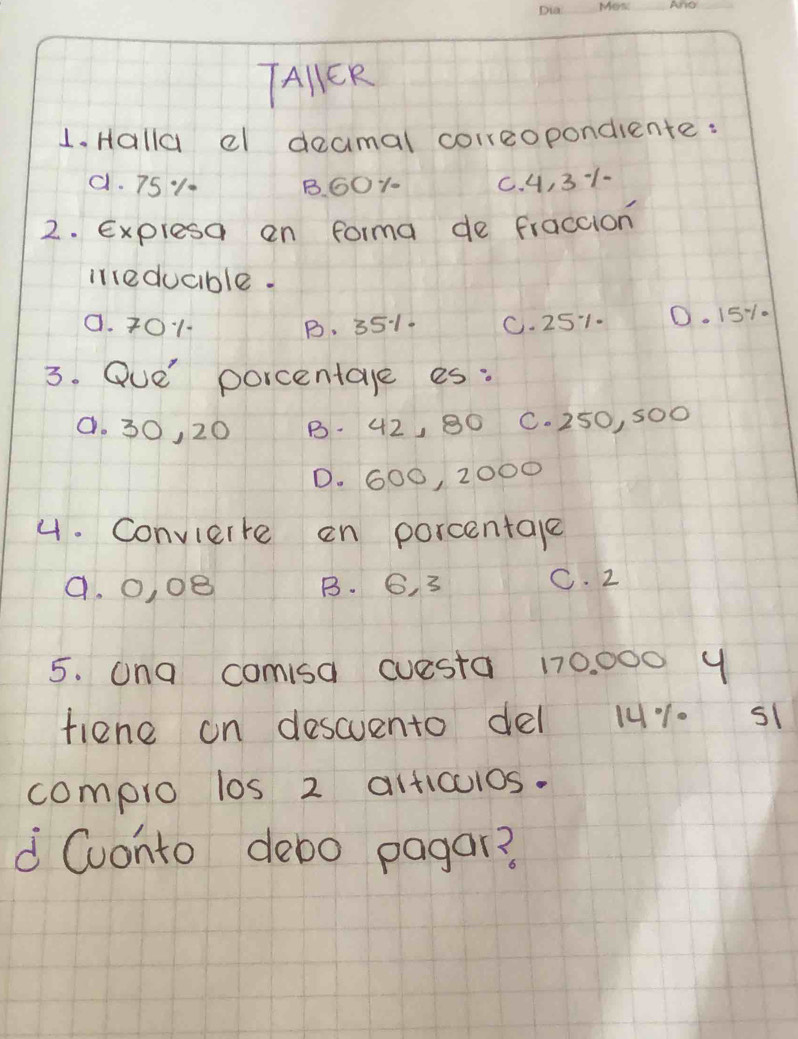 Dia Mes Año
TAllER
1. Halla el decimal correopondiente:
a. 75% B. 60% C. 4,3%
2. Expresa en forma de fraccion
irreducible.
a. 70% B. 35%. C. 25%. D. 15%.
3. Qué porcentaje es:
a. 30,20 B. 42,80 C. 250,500
D. 600,2000
4. Convierte en porcentaje
a. 0,08 B. 6,3 C. 2
5. Una camisa cuesta 170.000 y
tiene un descuento del 14% si
compro los 2 articulos.
¿Cuánto debo pagar?